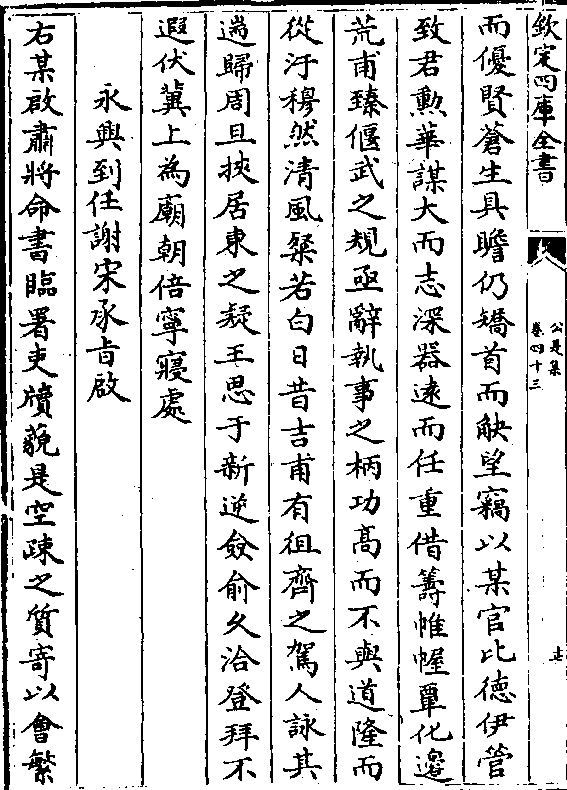 欽定四庫全書
公是集
卷四十三
十七
而優賢蒼生具瞻仍矯首而觖望竊以某官比德伊管
致君勲華謀大而志深器逺而任重借籌帷幄覃化邊
荒甫臻偃武之規亟辭執事之柄功髙而不與道隆而
從汙穆然清風粲若白日昔吉甫有徂齊之駕人詠其
遄歸周旦挾居東之疑王思于新逆僉俞久洽登拜不
遐伏冀上為廟朝倍寧寢處
永興到任謝宋承㫖啟
右某啟肅將命書臨署吏牘藐是空疎之質寄以㑹繁